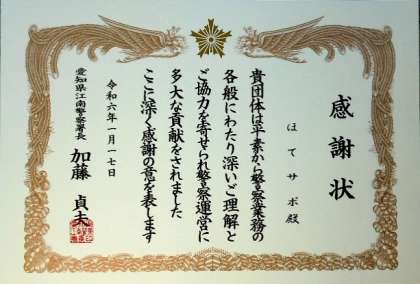 感謝状
ほてサポ殿
貴団体は平素から警察業務の
各般にわたり深いご理解と
ご協力を寄せられ警察運営に
多大な貢献をされました
ここに深く感謝の意を表します
令和六年一月一七日
愛知県江南警察署長
加藤貞夫